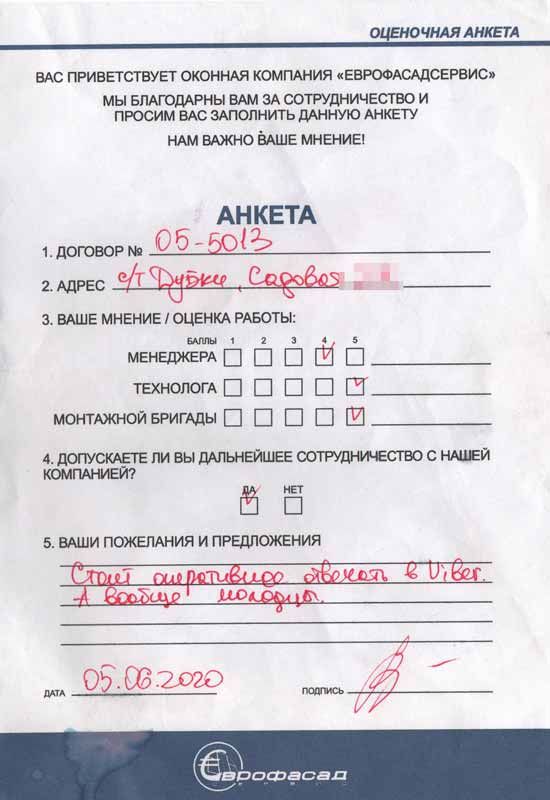 ОЦЕНОЧНАЯ АНКЕТА
ВАС ПРИВЕТСТВУЕТ ОКОННАЯ КОМПАНИЯ «ЕВРОФАСАДСЕРВИС»
МЫ БЛАГОДАРНЫ ВАМ ЗА СОТРУДНИЧЕСТВО И
ПРОСИМ ВАС ЗАПОЛНИТЬ ДАННУЮ АНКЕТУ
НАМ ВАЖНО ВАШЕ МНЕНИЕ!
АНКЕТА
1. ДОГОВОР № 05-5013
2. АДРЕС с/т Дубки, Садовая
3. ВАШЕ МНЕНИЕ / ОЦЕНКА РАБОТЫ:
БАЛЛЫ 1 2 3 4 5
МЕНЕДЖЕРА
ТЕХНОЛОГА
МОНТАЖНОЙ БРИГАДЫ
4. ДОПУСКАЕТЕ ЛИ ВЫ ДАЛЬНЕЙШЕЕ СОТРУДНИЧЕСТВО С НАШЕЙ
КОМПАНИЕЙ?
ДА НЕТ
5. ВАШИ ПОЖЕЛАНИЯ И ПРЕДЛОЖЕНИЯ
Стоит оперативнее отвечать в Viber.
А вообще молодцы.
ДАТА 05.06.2020 ПОДПИСЬ
Єврофасад
сервис